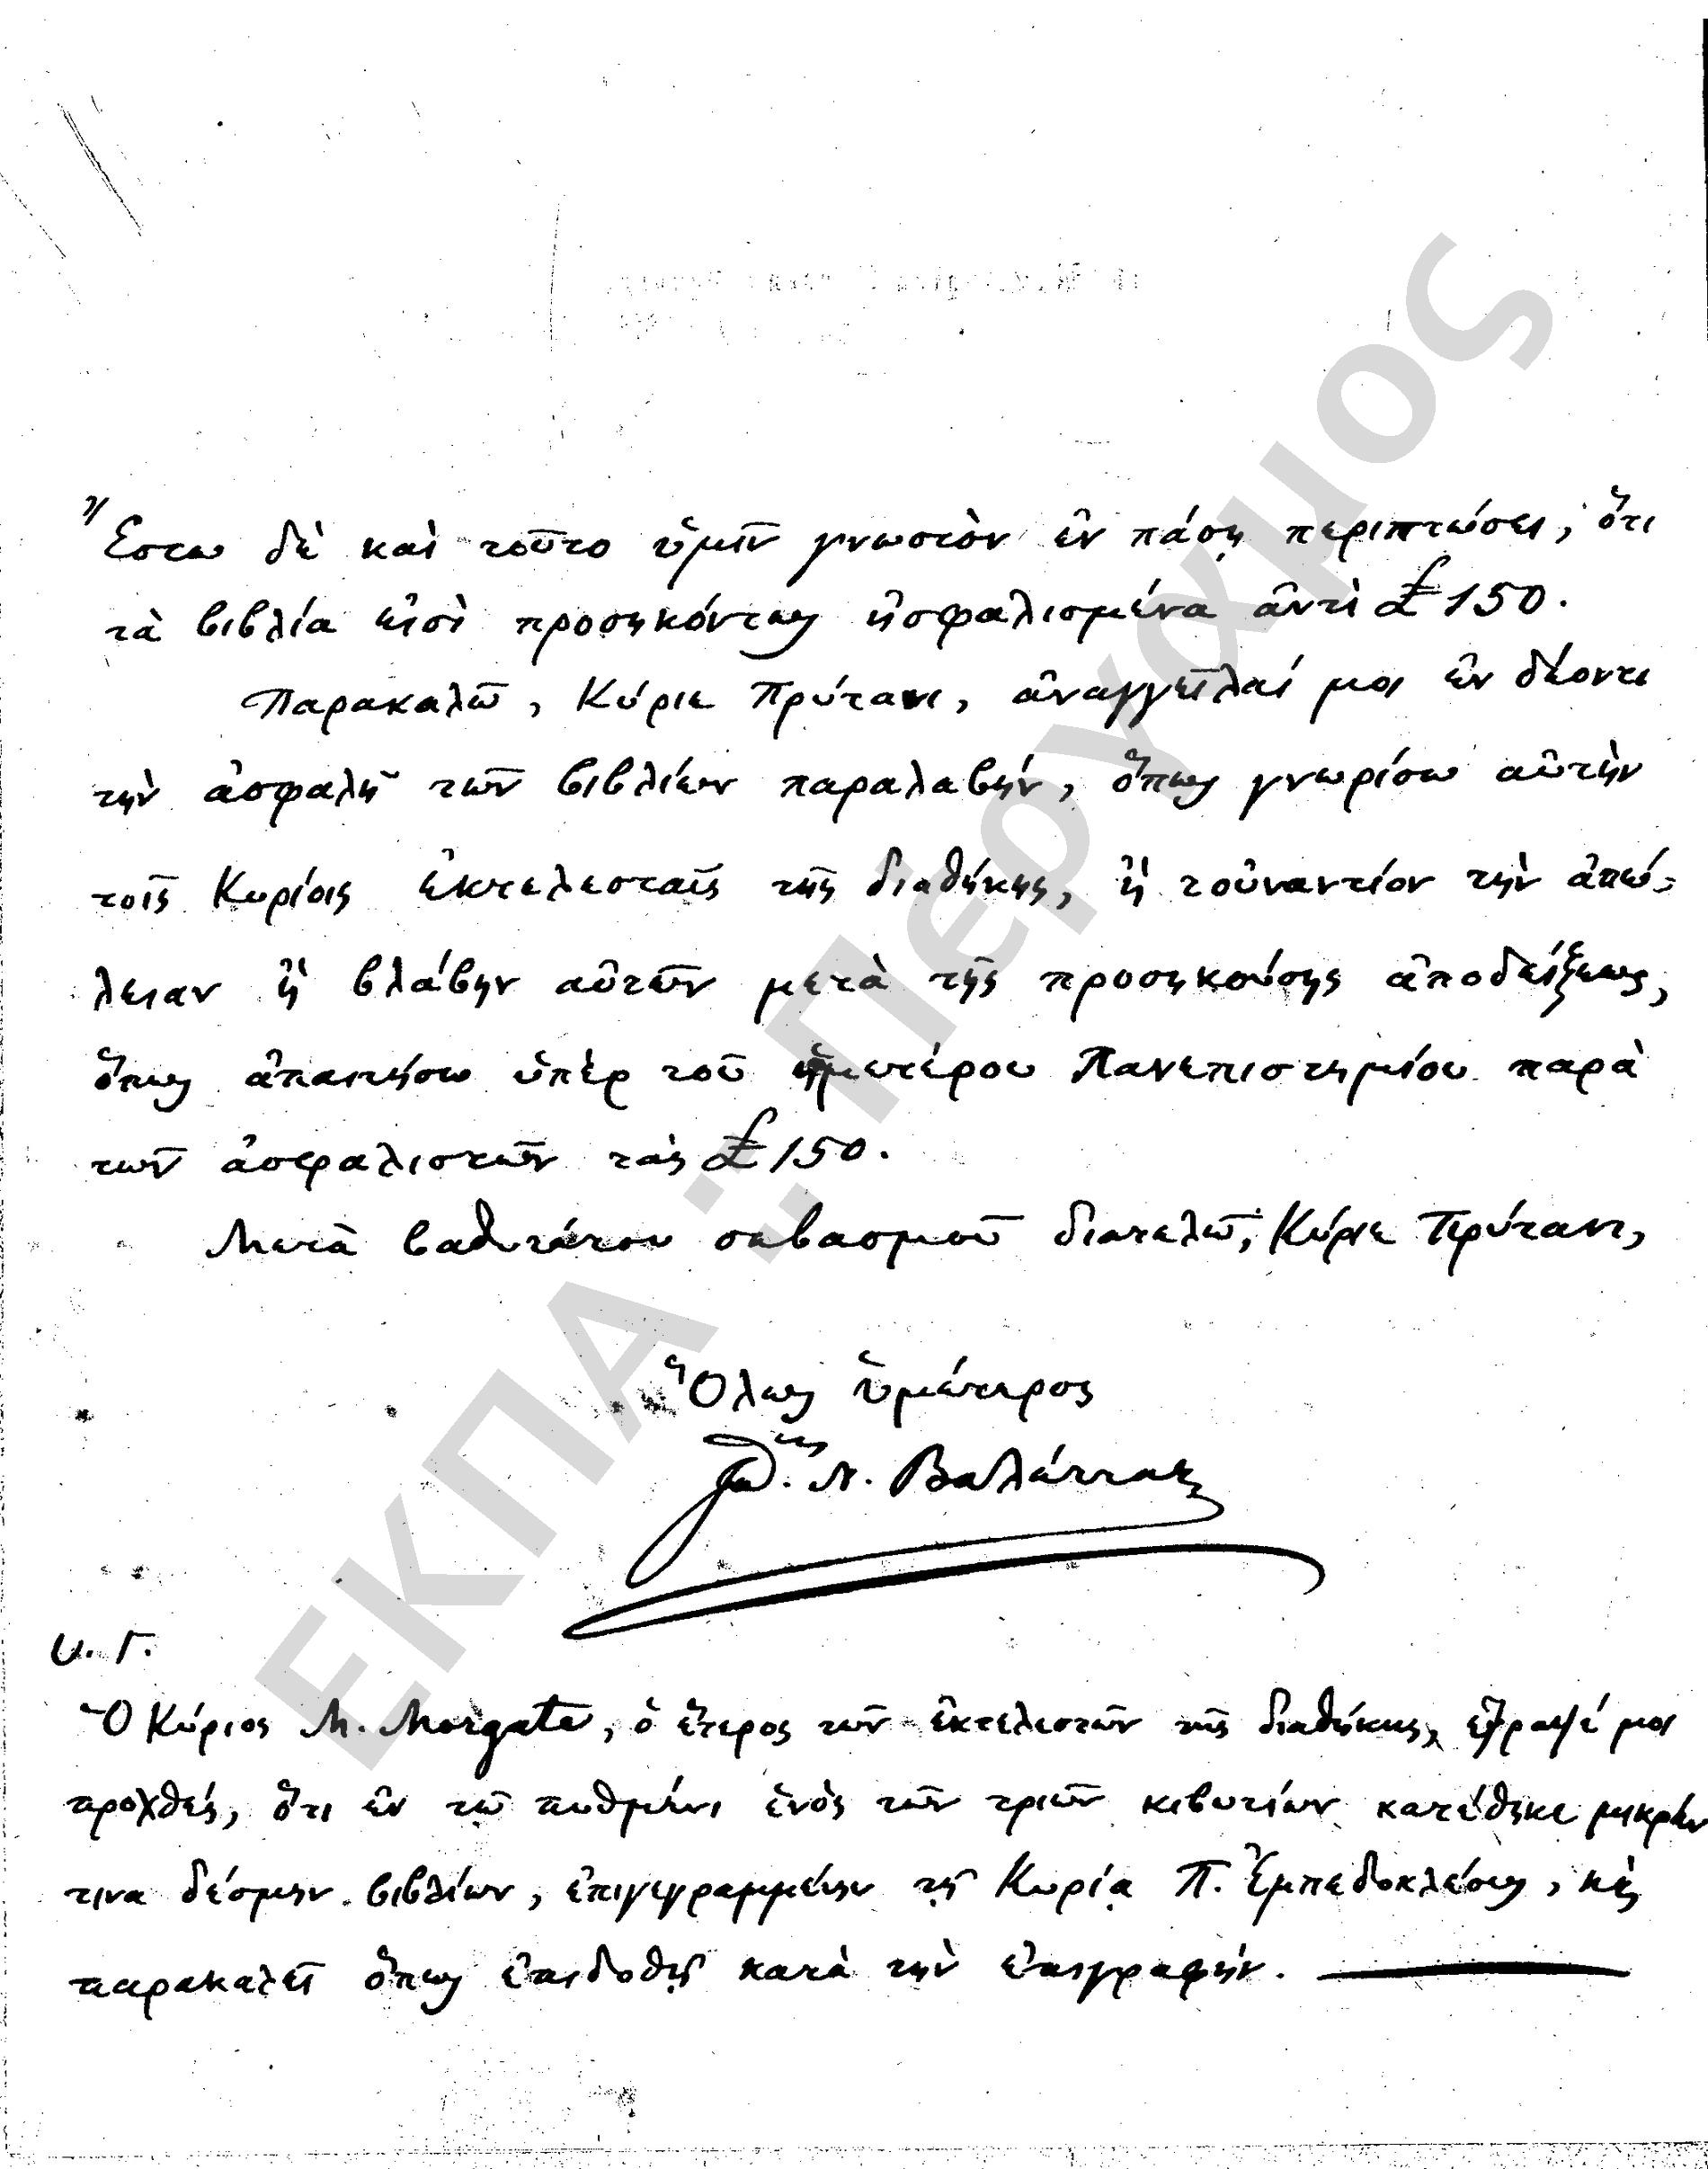 Ἔστω δὲ καὶ τοῦτο ὑμῖν γνωστὸν ἐν πάσῃ περιπτώσει, ὅτι
τὰ βιβλία εἰσὶ προσηκόντως ἠσφαλισμένα ἀντὶ £ 150.
Παρακαλῶ, Κύριε Πρύτανι, ἀναγγεῖλαί μοι ἐν δέοντι
τὴν ἀσφαλῆ τῶν βιβλίων παραλαβήν, ὅπως γνωρίσω αὐτὴν
τοῖς Κυρίοις ἐκτελεσταῖς τῆς διαθήκης, ἢ τοὐναντίον τὴν ἀπώ-
λειαν ἢ βλάβην αὐτῶν μετὰ τῆς προσηκούσης ἀποδείξεως,
ὅπως ἀπαιτήσω ὑπὲρ τοῦ ἡμετέρου Πανεπιστημίου παρὰ
τῶν ἀσφαλιστῶν τὰς £ 150.
Μετὰ βαθυτάτου σεβασμοῦ διατελῶ, Κύριε Πρύτανι,
Ὅλως ὑμέτερος
Ἰω. Ν. Βαλέττας
Υ. Γ.
Ὁ Κύριος M. Morgate, ὁ ἕτερος τῶν ἐκτελεστῶν τῆς διαθήκης, ἔγραψέ μοι
προχθές, ὅτι ἐν τῷ πυθμένι ἑνὸς τῶν τριῶν κιβωτίων κατέθηκε μικράν
τινα δέσμην βιβλίων, ἐπιγεγραμμένην τῇ Κυρίᾳ Π. Ἐμπεδοκλέους, κὲ
παρακαλεῖ ὅπως ἐπιδοθῇ κατὰ τὴν ἐπιγραφήν.
ΕΚΠΑ :: Πέργαμος